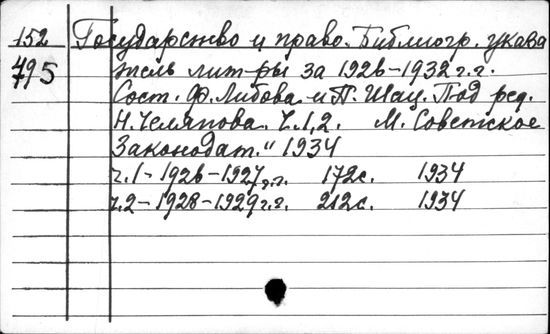 152 Государство и право. Библиогр. указа
495 тель лит-ры за 1926-1932 г.г.
Сост. Ф. Либова и П. Шац. Под ред.
Н. Челяпова. Ч.1,2. М. Советское
Законодат." 1934
ч.1- 1926-1927 г.г. 172с. 1934
ч.2- 1928-1929 г.г. 212с. 1934